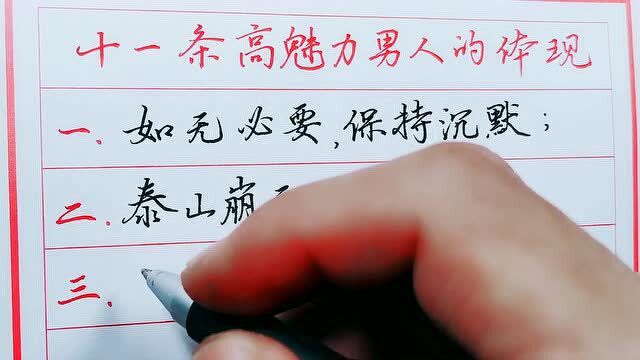 十一条高魅力男人的体现
一.如无必要,保持沉默;
二.泰山崩
三.